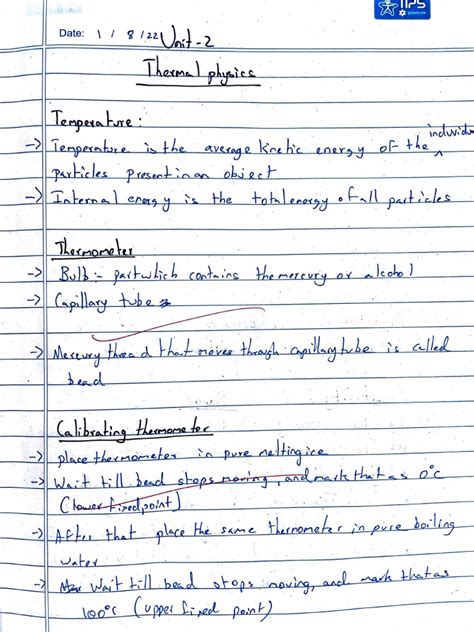 IIPS
Date: 1 / 8 / 22 Unit - 2
Thermal physics
Temperature :
-> Temperature is the average kinetic energy of the individual
particles present in an object
-> Internal energy is the total energy of all particles
Thermometer
-> Bulb :- part which contains the mercury or alcohol
-> Capillary tube
-> Mercury thread that moves through capillary tube is called
bead
Calibrating thermometer
-> place thermometer in pure melting ice
-> Wait till bead stops moving, and mark that as 0°C
(lower fixed point)
-> After that place the same thermometer in pure boiling
water
-> Wait till bead stops moving, and mark that as
100°C (upper fixed point)